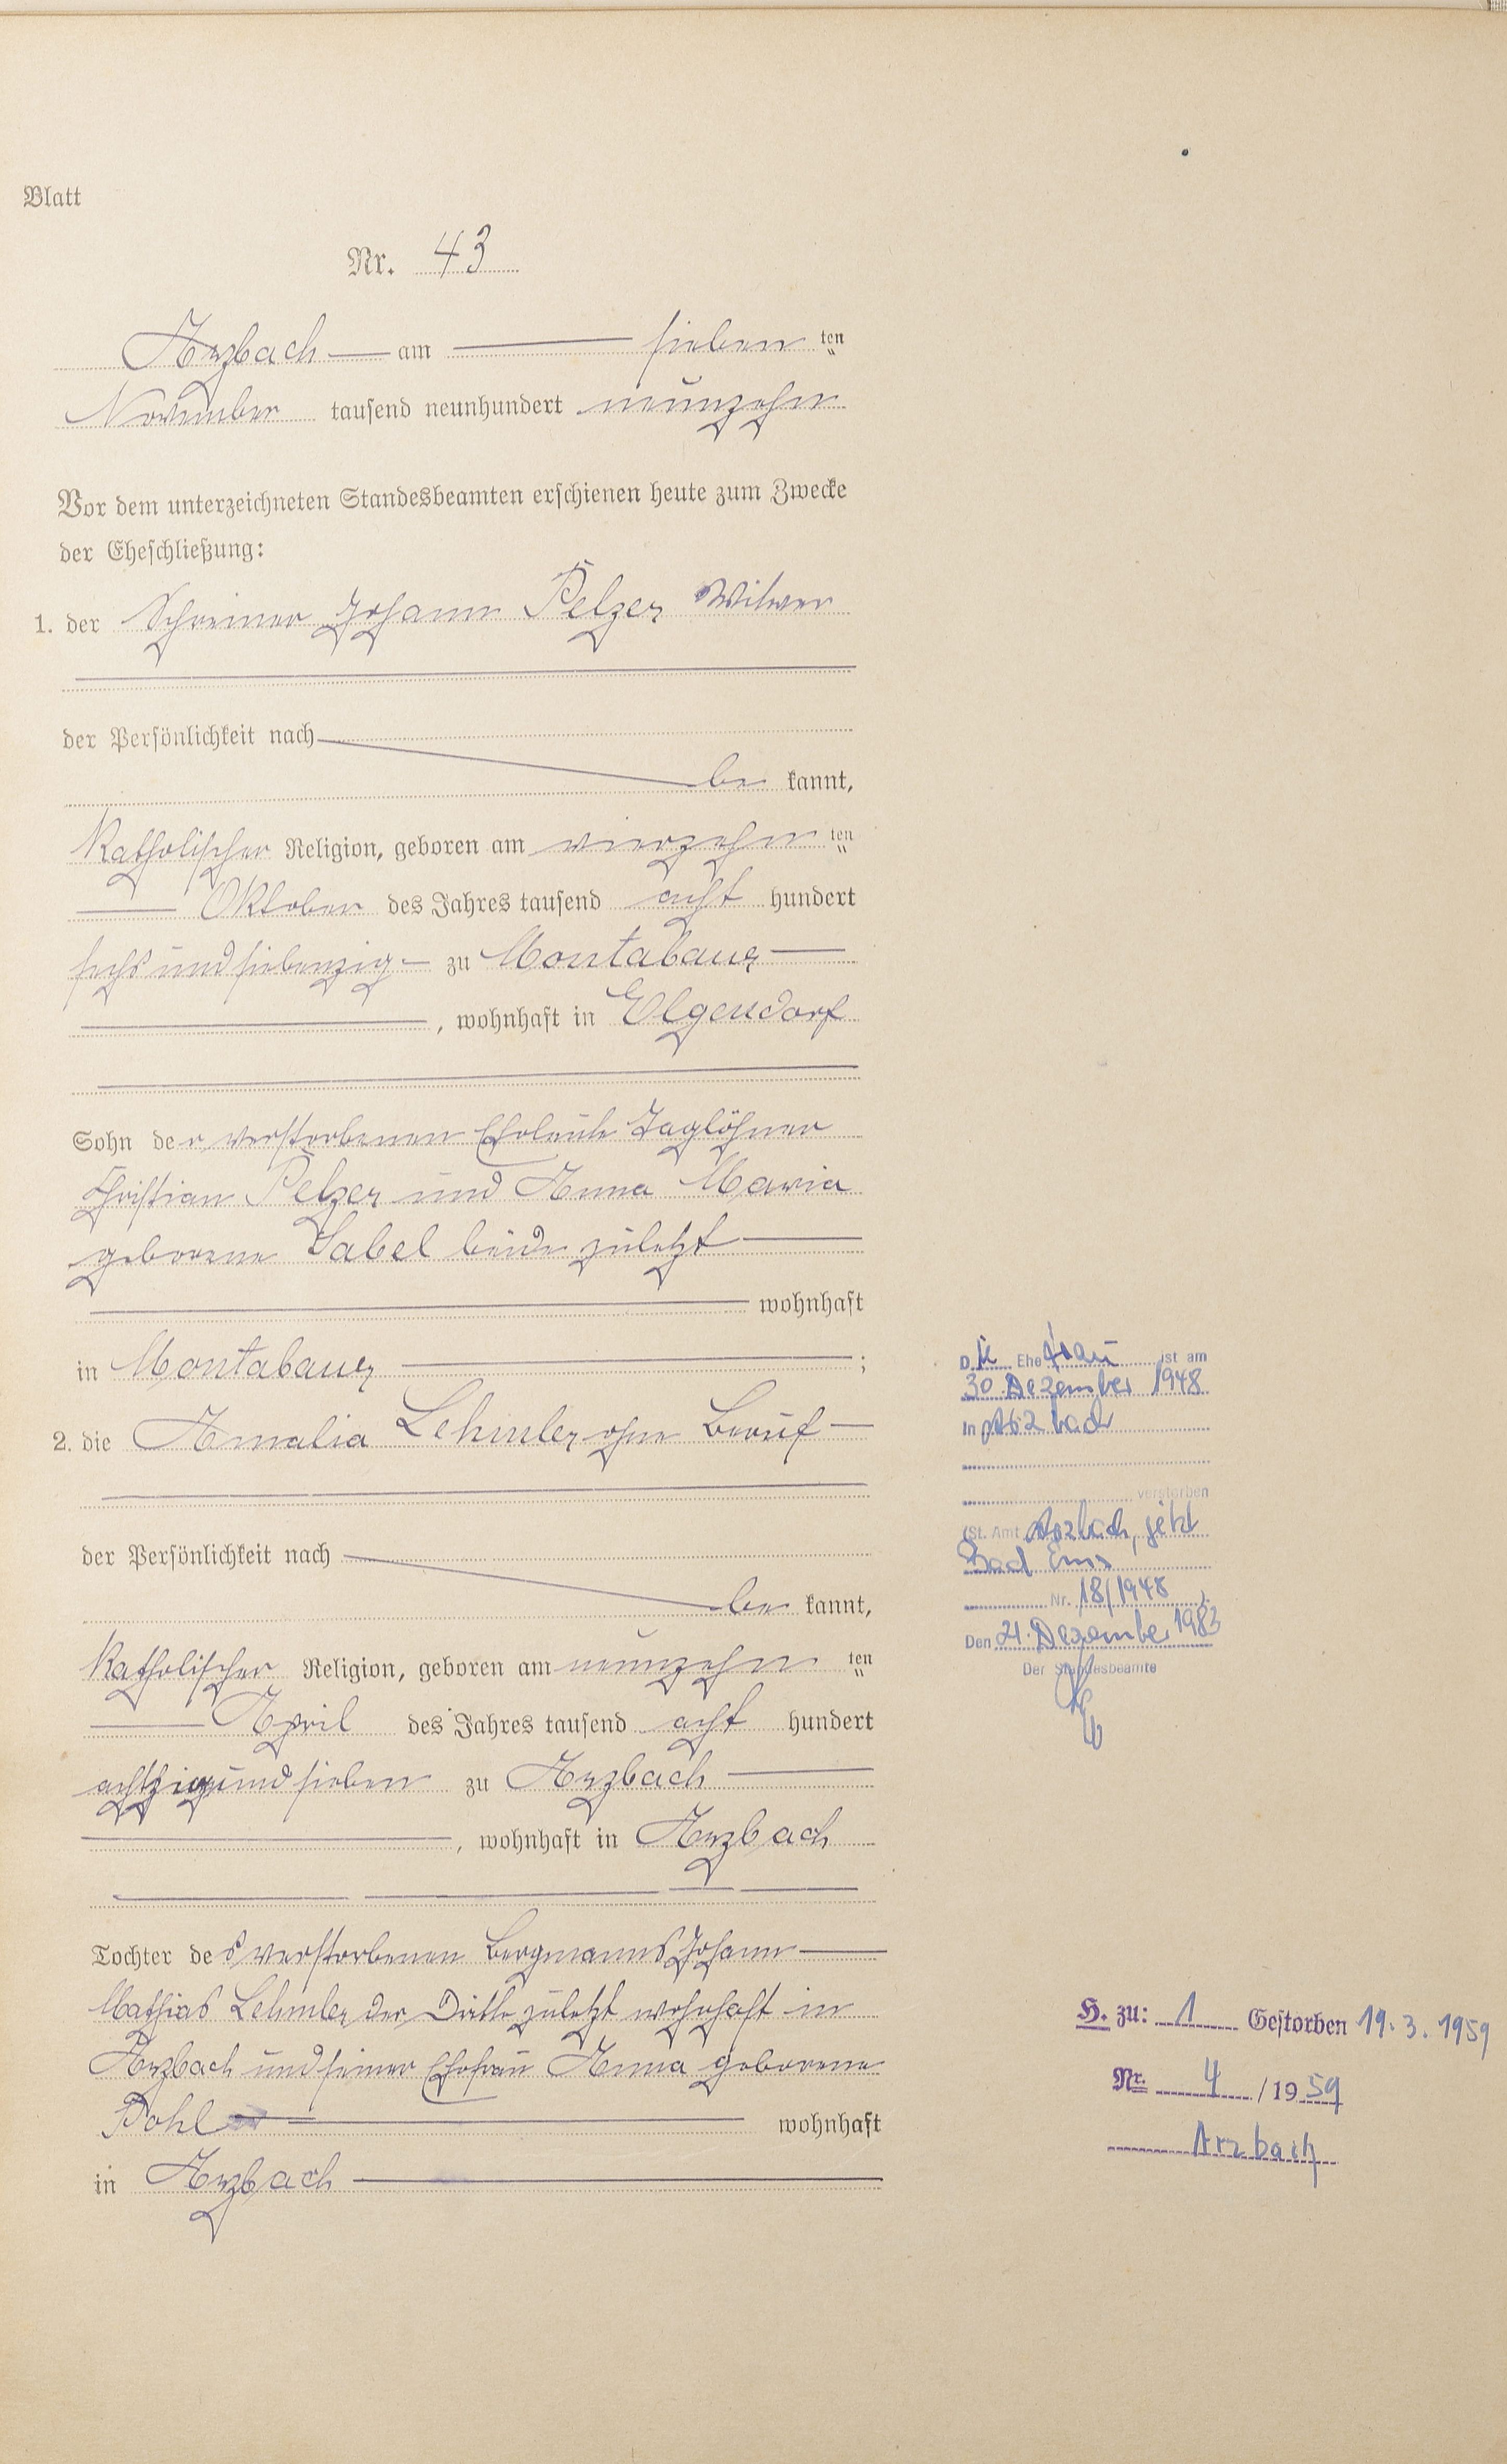 Blatt
Nr. 43
Arzbach am sieben ten
November tausend neunhundert neunzehn
Vor dem unterzeichneten Standesbeamten erschienen heute zum Zwecke
der Eheschließung:
1. der Schreiner Johann Pelzer Witwer
der Persönlichkeit nach
be kannt,
Katholischer Religion, geboren am vierzehn ten
Oktober des Jahres tausend acht hundert
sechs und siebenzig zu Montabaur
, wohnhaft in Elgendorf
Sohn der verstorbenen Eheleute Taglöhner
Christian Pelzer und Anna Maria
geborene Sabel beide zuletzt
wohnhaft
in Montabaur ;
2. die Amalia Lehmler ohne Beruf
der Persönlichkeit nach
be kannt,
Katholischer Religion, geboren am neunzehn ten
April des Jahres tausend acht hundert
achtzig und sieben zu Arzbach
, wohnhaft in Arzbach
Tochter des verstorbenen Bergmanns Johann
Mathias Lehmler der Dritte zuletzt wohnhaft in
Arzbach und seiner Ehefrau Anna geborene
Bohl wohnhaft
in Arzbach
Die Ehefrau ist am
30. Dezember 1948
in Arzbach
verstorben
(St. Amt Arzbach, jetzt
Bad Ems
Nr. 18/1948 ).
Den 21. Dezember 1983
Der Standesbeamte
H. zu: 1 Gestorben 19.3.1959
Nr. 4 / 1959
Arzbach